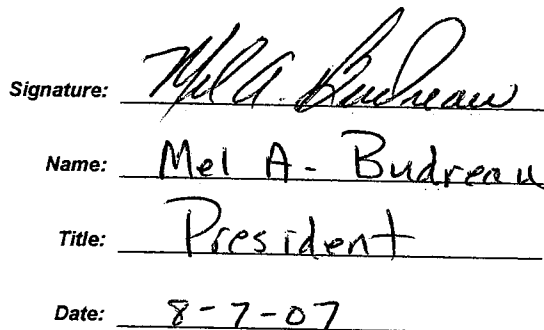 Signature: Mel A. Budreau
Name: Mel A. Budreau
Title: President
Date: 8-7-07